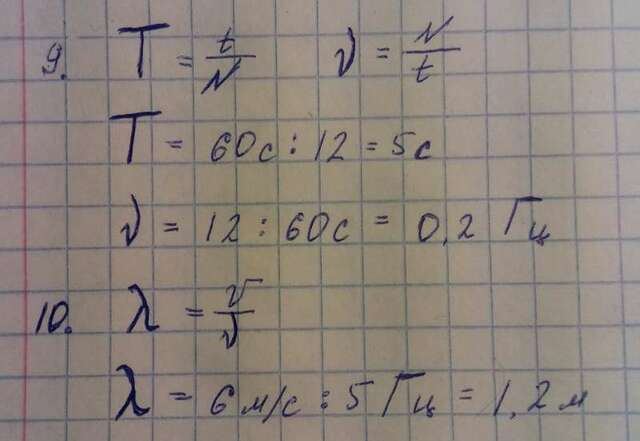 9. T = t/N ν = N/t
T = 60с : 12 = 5с
ν = 12 : 60с = 0,2 Гц
10. λ = v/ν
λ = 6 м/с : 5 Гц = 1,2 м